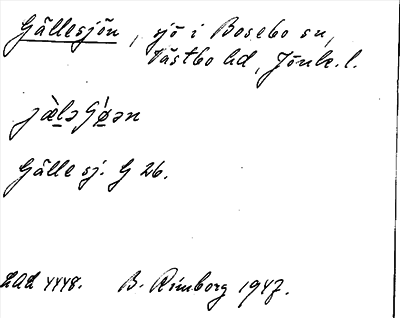 Gällesjön, sjö i Bosebo sn,
Västbo hd, Jönk. l.
Gälle sj. G 26.
LAL 4448. B. Rimborg 1947.